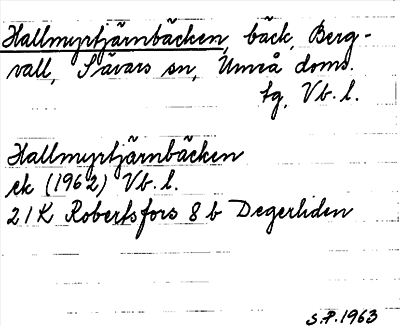 Hallmyrtjärnbäcken, bäck, Berg-
vall, Sävars sn, Umeå doms.
tg, Vb. l.
Hallmyrtjärnbäcken
ek (1962) Vb. l.
21K Robertsfors 8 b Degerliden
S.P. 1963